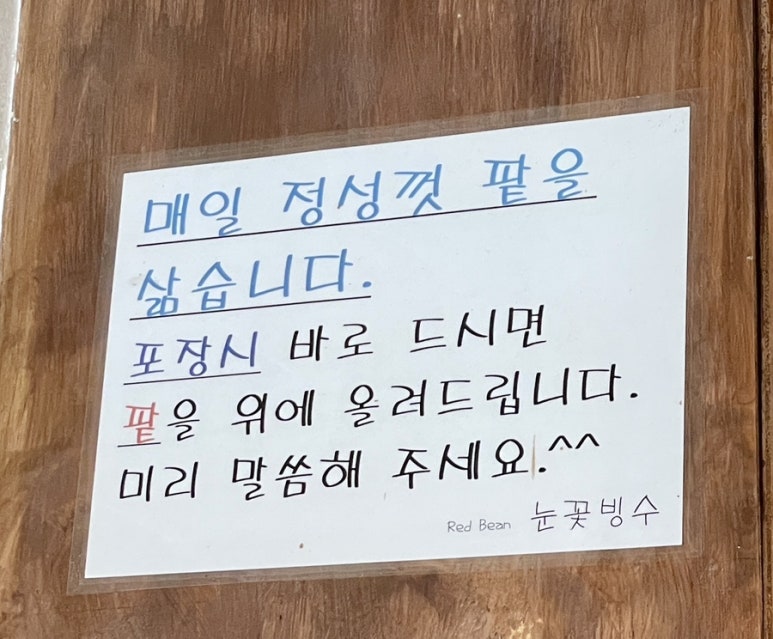 매일 정성껏 팥을
삶습니다.
포장시 바로 드시면
팥을 위에 올려드립니다.
미리 말씀해 주세요.^^
Red Bean 눈꽃빙수